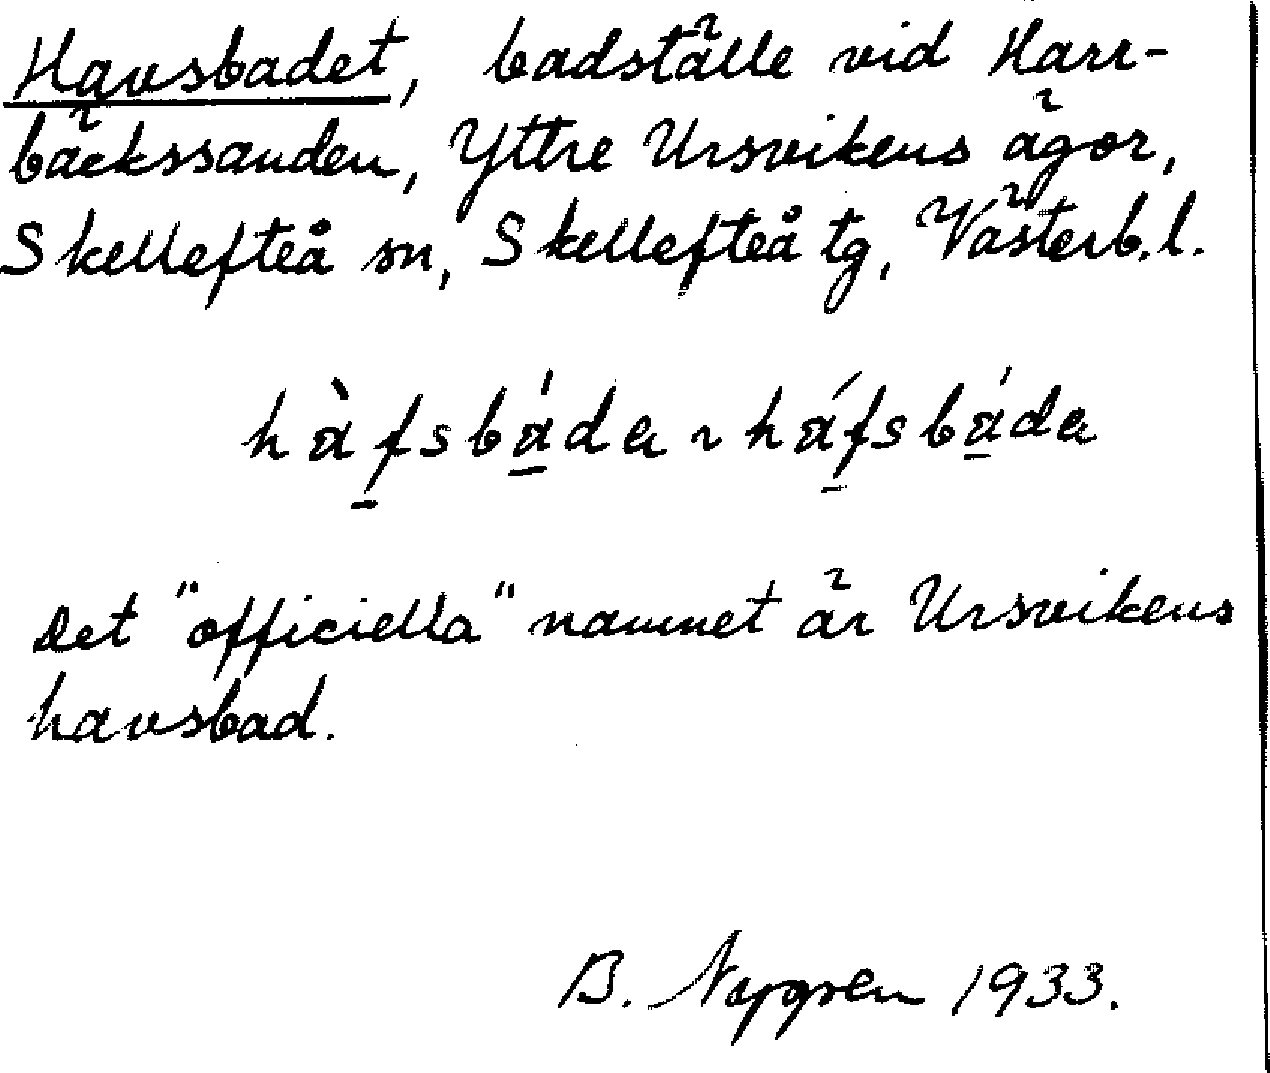 Havsbadet, badställe vid Harr-
bäckssanden, Yttre Ursvikens ägor,
Skellefteå sn, Skellefteå tg, Västerb.l.
hàfsbáda ~ háfsbáda
Det "officiella" namnet är Ursvikens
havsbad.
B. Nygren 1933.